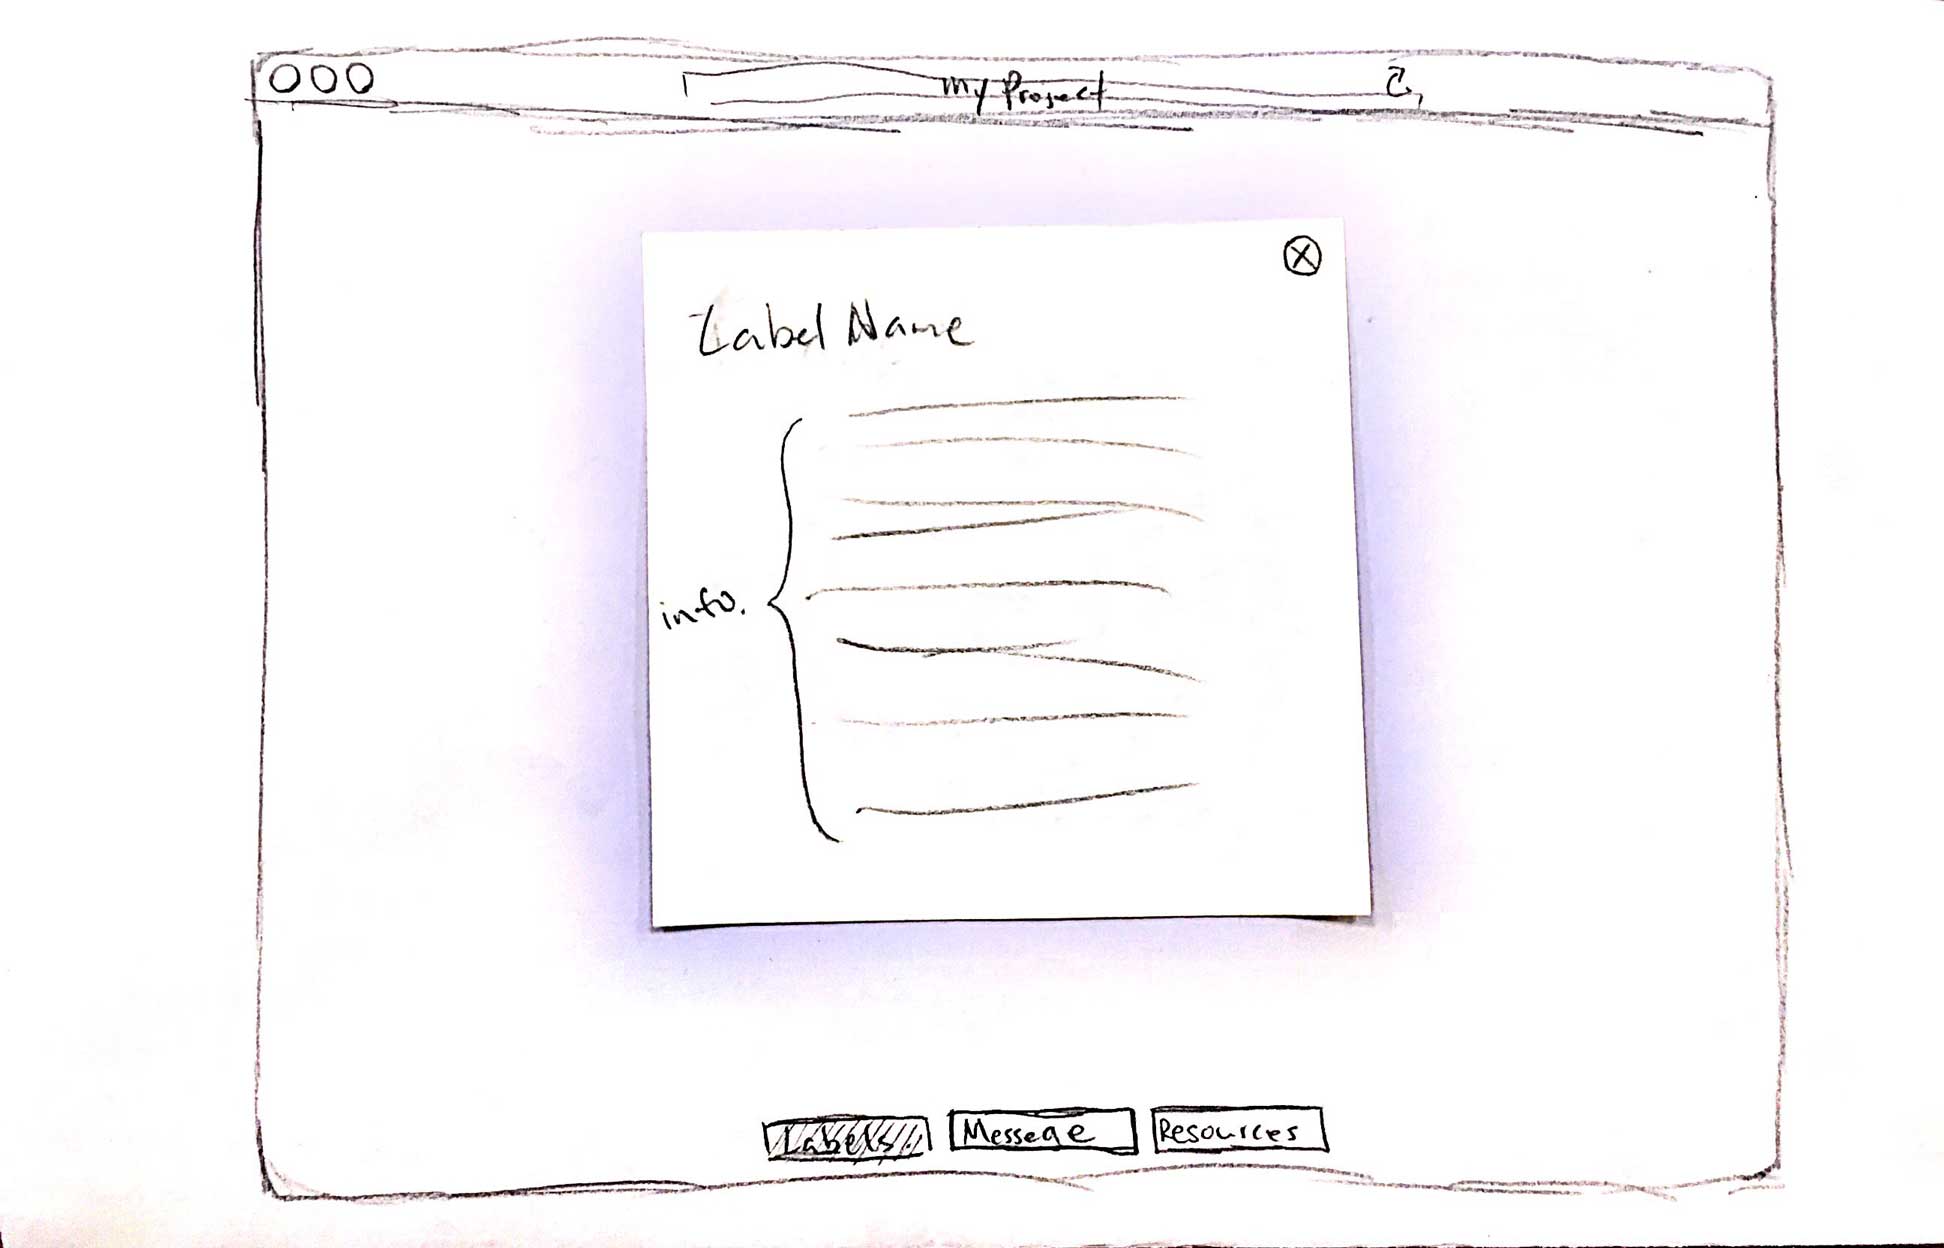 My Project
Label Name
info.
Labels
Messege
Resources